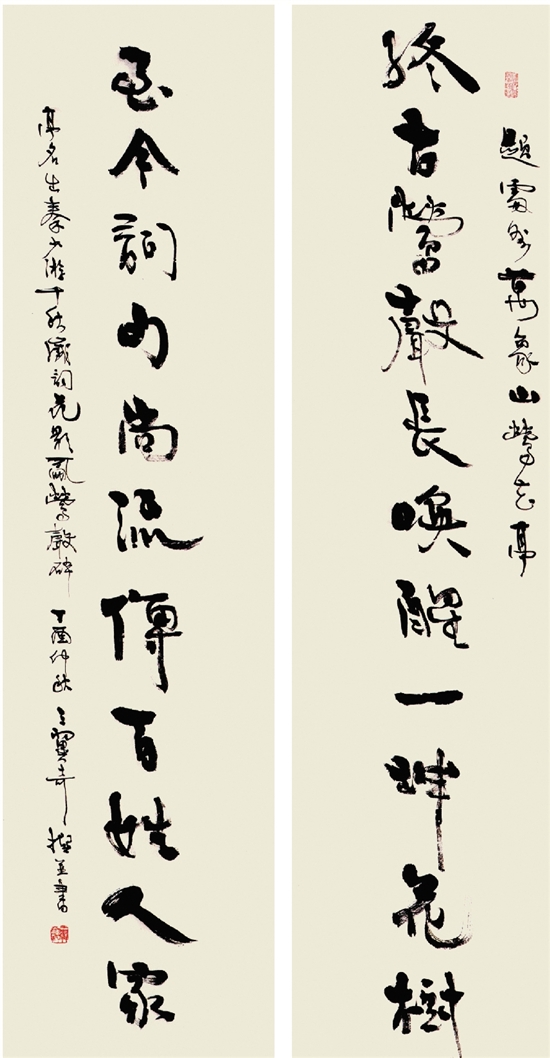 題處州萬象山鶯花亭
終古鶯聲長喚醒一花樹
至今詞句尚流傳百姓人家
亭名出秦少游千秋歲詞花影亂鶯聲碎 丁酉仲秋 王翼奇撰並書